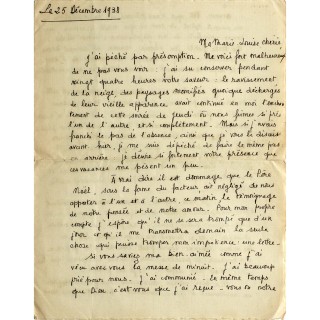 Le 25 Décembre 1938
Ma Marie Louise chérie,
J'ai péché par présomption. Me voici fort malheureux
de ne pas vous voir. J'ai su conserver pendant
vingt quatre heures votre saveur : le ravissement
de la neige, des paysages modifiés quoique déchargés
de leur vieille apparence, avait continué en moi l'enchan-
tement de cette soirée de jeudi où nous fûmes si près
l'un de l'autre et si complètement. Mais si j'avais
franchi le pas de l'absence, ainsi que je vous le disais
avant hier, je me suis dépêché de faire le même pas
en arrière. Je désire si fortement votre présence que
ces vacances me pèsent un peu.
A vrai dire il est dommage que le Père
Noël, sous la forme du facteur, ait négligé de nous
apporter à l'un et à l'autre, ce matin, le témoignage
de notre pensée et de notre amour. Pour mon propre
compte j'espère qu'il ne se sera trompé que d'un
jour et qu'il me transmettra demain la seule
chose qui puisse tromper mon impatience : une lettre.
Si vous saviez ma bien aimée comme j'ai
vécu avec vous la messe de minuit. J'ai beaucoup
prié pour nous. J'ai communié. Le même temps
que Dieu, c'est vous que j'ai reçue. Vous ou notre